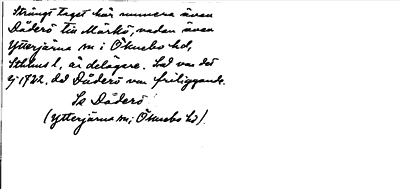 Strängt taget hör numera även
Dåderö till Mörkö, sedan även
Ytterjärna sn i Öknebo hd,
Sthlms l, är delägare. Så var det
ej 1722, då Dåderö var friliggande.
Se Dåderö
(Ytterjärna sn, Öknebo hd).